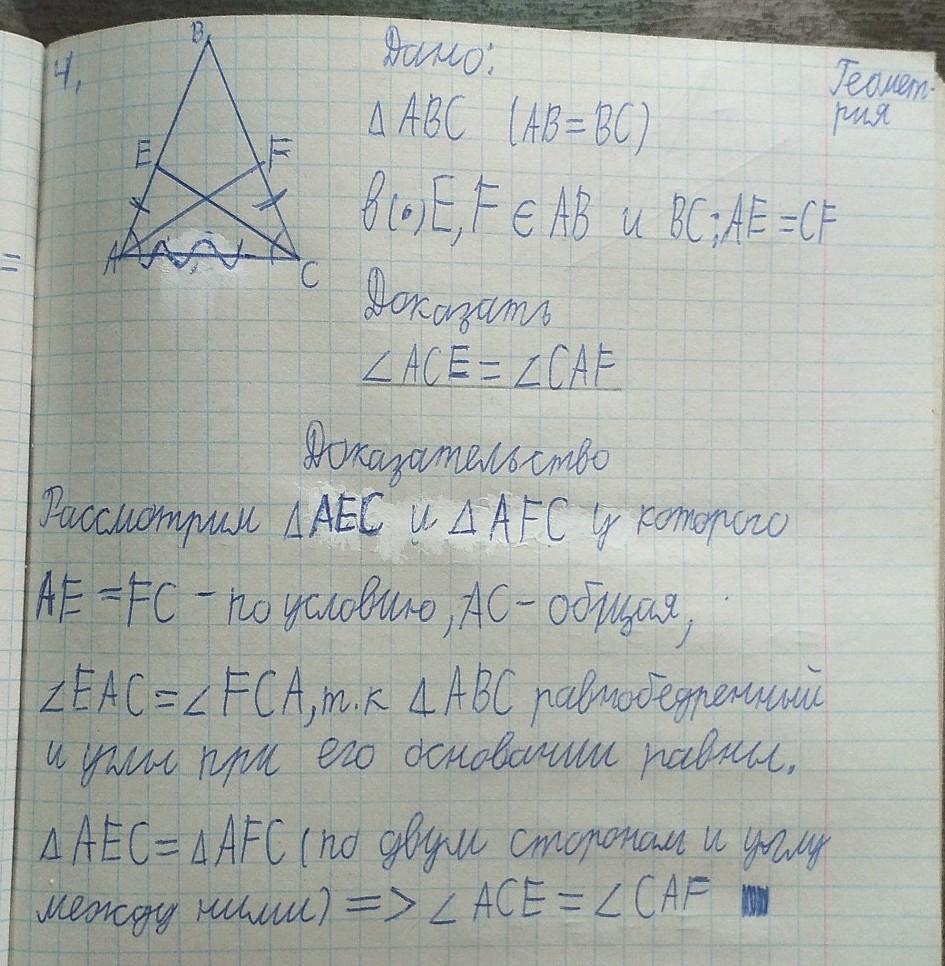 4.
B
E F
A C
Дано:
Геомет-
рия
△ ABC (AB=BC)
в(•)E,F ∈ AB и BC; AE = CF
Доказать
∠ACE = ∠CAF
Доказательство
Рассмотрим △AEC и △AFC у которого
AE = FC - по условию, AC - общая,
∠EAC = ∠FCA, т.к △ABC равнобедренный
и углы при его основании равны.
△AEC = △AFC (по двум сторонам и углу
между ними) => ∠ACE = ∠CAF
=